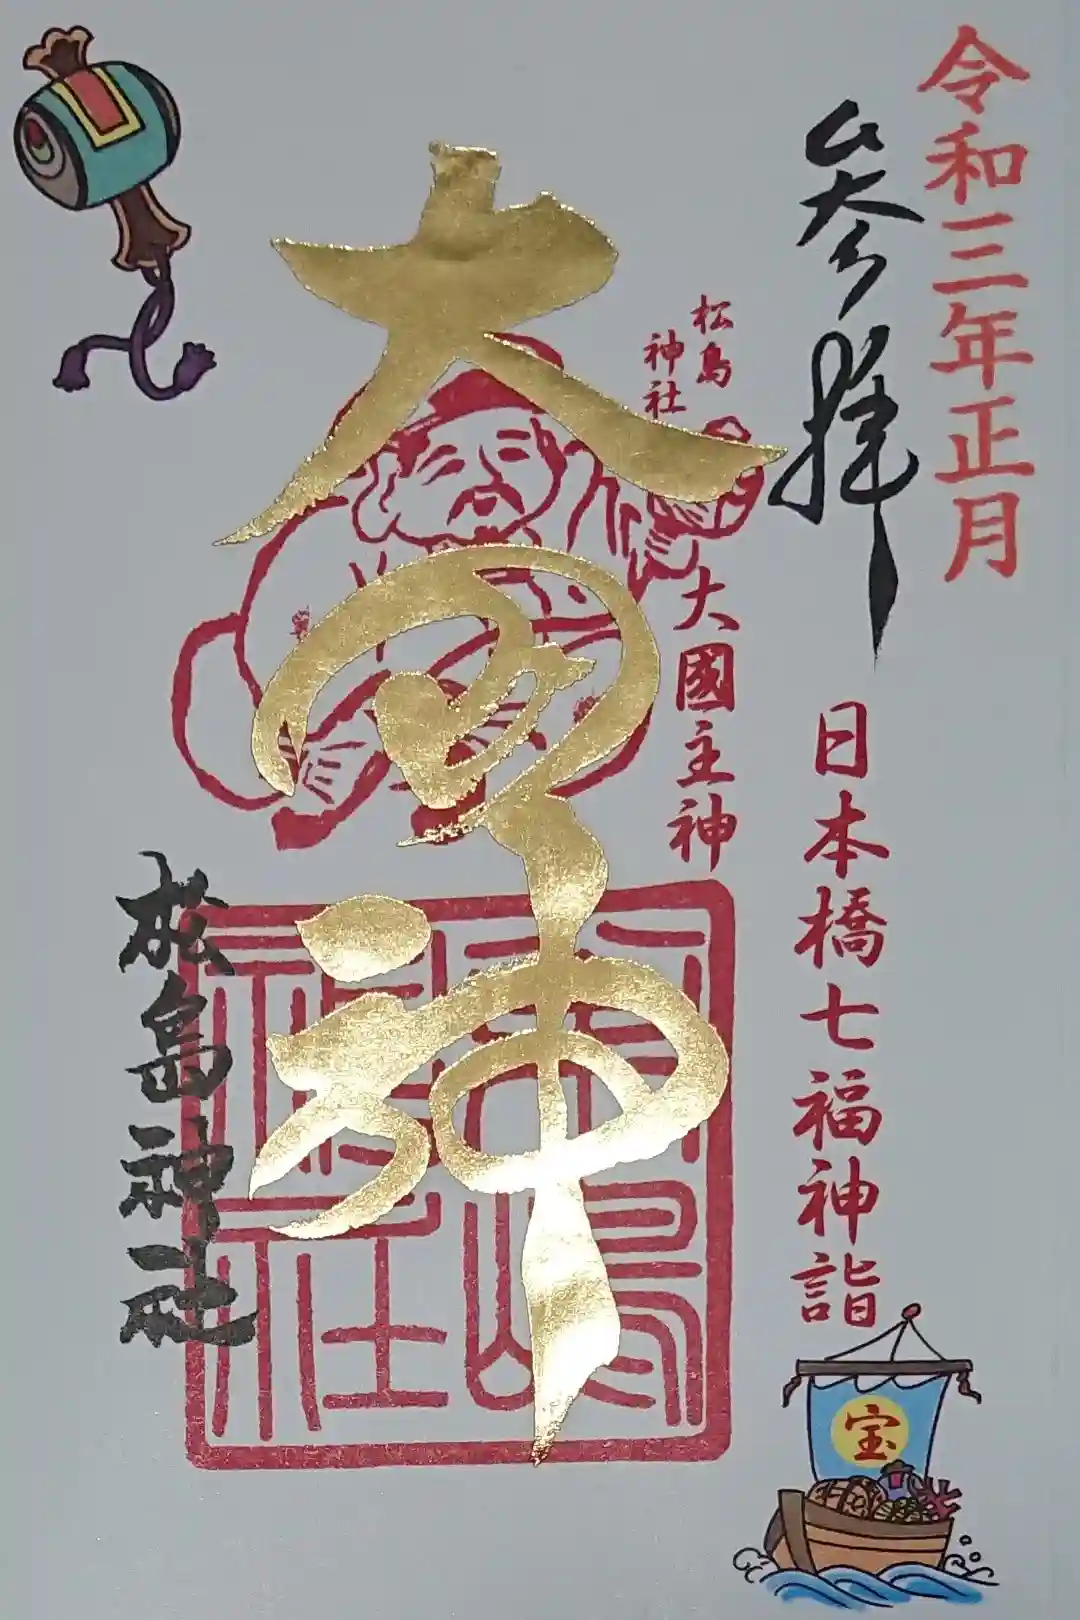 令和三年正月
参拝
日本橋七福神詣
宝
松島
神社
大國主神
大黒神
松島神社
松島神社